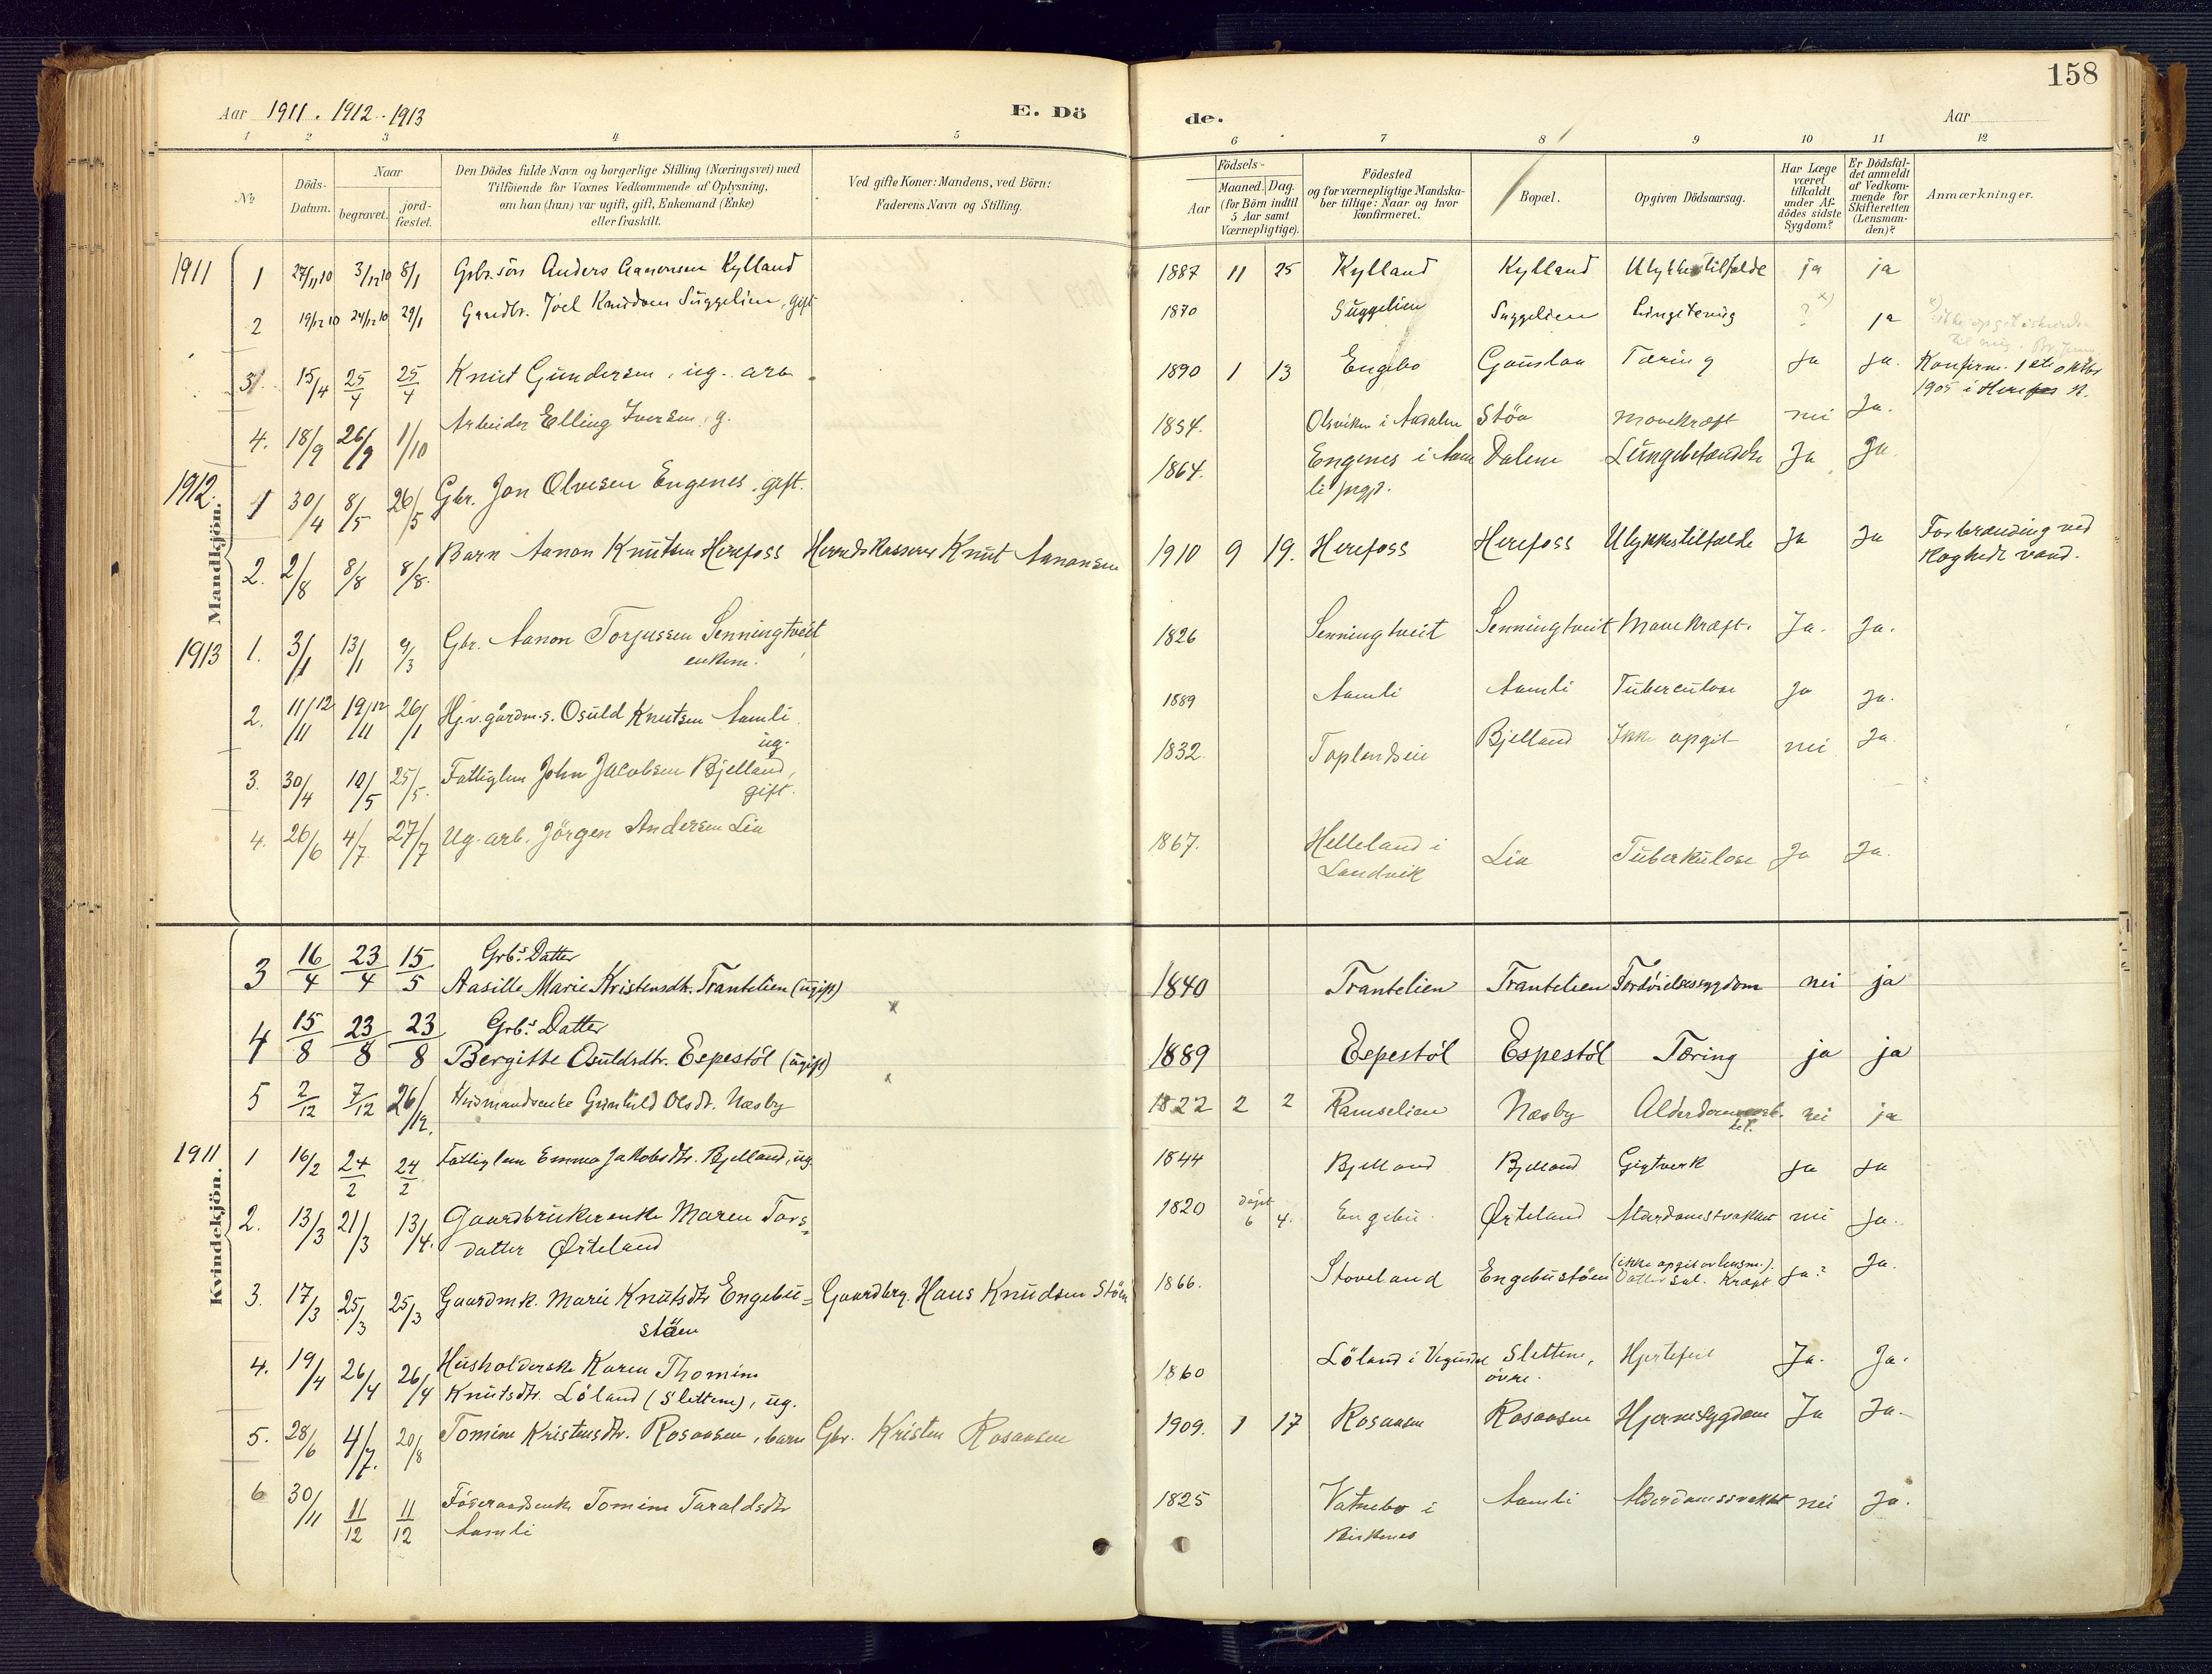 158
Aar 1911. 1912. 1913
E. Dö
de.
Aar
1 2 3 4 5 6 7 8 9 10 11 12
№
Döds-Datum.
Naar
begravet.
jord-fæstet.
Den Dödes fulde Navn og borgerlige Stilling (Næringsvei) med
Tilföiende for Voxnes Vedkommende af Oplysning,
om han (hun) var ugift, gift, Enkemand (Enke)
eller fraskilt.
Ved gifte Koner: Mandens, ved Börn:
Faderens Navn og Stilling.
Aar
Födsels-
Maaned. Dag.
(for Börn indtil
5 Aar samt
Værnepligtige).
Födested
og for værnepligtige Mandska-
ber tillige: Naar og hvor
konfirmeret.
Bopæl.
Opgiven Dödsaarsag.
Har Læge
været
tilkaldt
under Af-
dödes sidste
Sygdom?
Er Dödsfal-
det anmeldt
af Vedkom-
mende for
Skifteretten
(Lensman-
den)?
Anmærkninger.
Mandkjön.
1911 1 27/11 10 3/12 10 8/1 Gbr.sön Anders Aanonsen Kylland 1887 11 25 Kylland Kylland Ulykkestilfælde ja ja
2 19/12 10 24/12 10 29/1 Gaardbr. Joel Knudsen Suggelien, gift 1870 Suggelien Suggelien ? ja
3 15/4 25/4 25/4 Knut Gundersen, ug. arb. 1890 1 13 Engebo Gauslaa Tæring Ja ja. Konfirm. 1ste oktbr
1905 i Herefos k.
4. 18/9 26/9 1/10 Arbeider Elling Iversen, g. 1854. Olsviken i Aadalen Støa Mavekræft nei Ja.
1912. 1 30/4 8/5 26/5 Gbr. Jon Olvesen Engenes, gift. 1864. Engenes i Aam
li prgj. Dalene Lungebetændelse Ja Ja.
2. 2/8 8/8 8/8. Barn Aanon Knutsen Herefoss Herredskasserer Knut Aanonsen 1910 9 19. Herefoss Herefoss Ulykkestilfælde Ja Ja Forbrænding ved
koghedt vand.
1913 1. 3/1 13/1 9/3 Gbr. Aanon Torjussen Senningtveit,
enkem. 1826 Senningtveit Senningtveit Mavekræft. Ja. Ja.
2. 11/11 12 19/11 12 26/1 Hj.v. gårdm.s. Osuld Knutsen Aamli
ug. 1889 Aamli Aamli Tuberculose Ja Ja.
3. 30/4 10/5 25/5. Fattiglem John Jacobsen Bjelland,
gift. 1832. Toplandseie Bjelland Ikke opgit nei Ja
4. 26/6 4/7 27/7 Ug. arb. Jörgen Andersen Lia 1867. Helleland i
Landvik Lia Tuberkulose Ja Ja.
Kvindekjön.
3 16/4 23/4 15/5 Grb.s Datter
Aasille Marie Kristensdtr. Trantelien (ugift) 1840 Trantelien Trantelien Fordöielsessygdom nei ja
4 15/8 23/8 23/8 Grb.s Datter
Bergitte Osuldsdtr. Espestöl (ugift) 1889 Espestöl Espestöl Tæring ja ja
5 2/12 7/12 26/12. Husmandsenke Gunhild Olsdt. Næsby 1822 2 2 Ramselien Næsby nei ja
1911 1 16/2 24/2 24/2 Fattiglem Emma Jakobsdtr. Bjelland, ug. 1844 Bjelland Bjelland Gigtverk Ja Ja
2. 13/3 21/3 13/4. Gaardbrukerenke Maren Tars-
datter Ørteland 1820 døpt
6 4. Engebu Ørteland Alderdomssvakhet nei Ja.
3. 17/3 25/3 25/3 Gaardmk. Marie Knutsdtr Engebu=
støen Gaardbrg. Hans Knudsen Støen 1866. Stoveland Engebustøen (ikke opgit av lensm.).
Kræft Ja? Ja.
4. 19/4 26/4 26/4 Husholderske Karen Thomine
Knutsdtr. Löland (Slettene), ug. 1860 Löland i Slettene,
övre. Hjertefeil Ja. Ja.
5. 28/6 4/7. 20/8 Tomine Kristensdtr. Rosaasen, barn Gbr. Kristen Rosaasen 1909. 1 17 Rosaasen Rosaasen Hjernesygdom Ja Ja.
6 30/11 11/12 11/12 Föderaadsenke Tomine Taraldsdtr
Aamli 1825 Vatnebo i
Birkenes Aamli Alderdomssvakhet nei Ja.